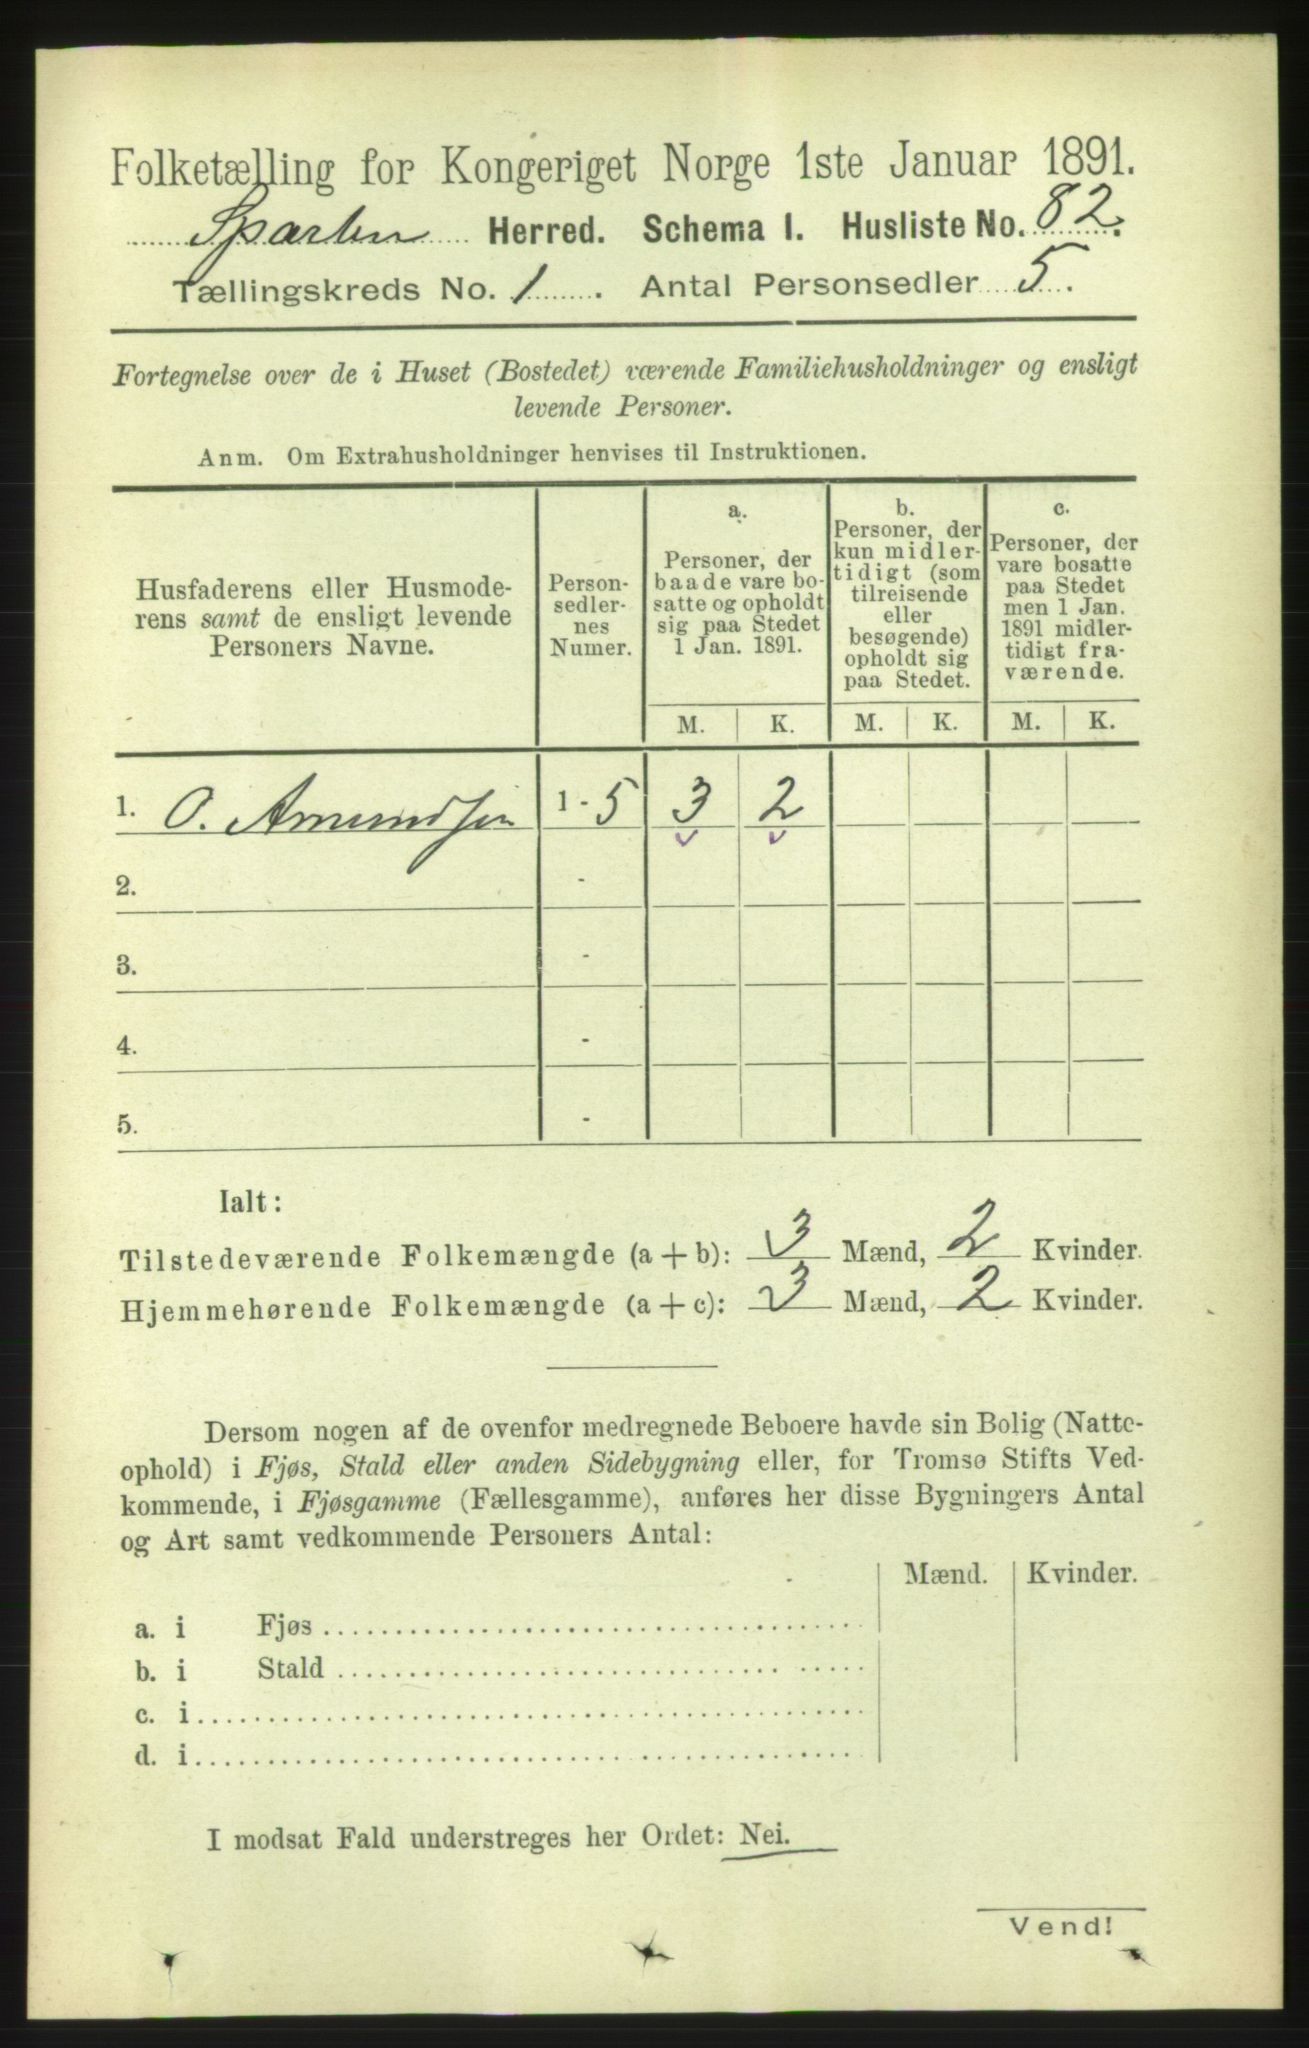 Folketælling for Kongeriget Norge 1ste Januar 1891.
Sparbu Herred. Schema I. Husliste No. 82.
Tællingskreds No. 1. Antal Personsedler 5.
Fortegnelse over de i Huset (Bostedet) værende Familiehusholdninger og ensligt
levende Personer.
Anm. Om Extrahusholdninger henvises til Instruktionen.
Husfaderens eller Husmode-
rens samt de ensligt levende
Personers Navne.
Person-
sedler-
nes
Numer.
a.
Personer, der
baade vare bo-
satte og opholdt
sig paa Stedet
1 Jan. 1891.
b.
Personer, der
kun midler-
tidigt (som
tilreisende
eller
besøgende)
opholdt sig
paa Stedet.
c.
Personer, der
vare bosatte
paa Stedet
men 1 Jan.
1891 midler-
tidigt fra-
værende.
M. K. M. K. M. K.
1. O. Amundsen 1 - 5 3 2
2. -
3. -
4. -
5. -
Ialt:
Tilstedeværende Folkemængde (a + b): 3 Mænd, 2 Kvinder.
Hjemmehørende Folkemængde (a + c): 3 Mænd, 2 Kvinder.
Dersom nogen af de ovenfor medregnede Beboere havde sin Bolig (Natte-
ophold) i Fjøs, Stald eller anden Sidebygning eller, for Tromsø Stifts Ved-
kommende, i Fjøsgamme (Fællesgamme), anføres her disse Bygningers Antal
og Art samt vedkommende Personers Antal:
Mænd. Kvinder.
a. i Fjøs
b. i Stald
c. i
d. i
I modsat Fald understreges her Ordet: Nei.
Vend!